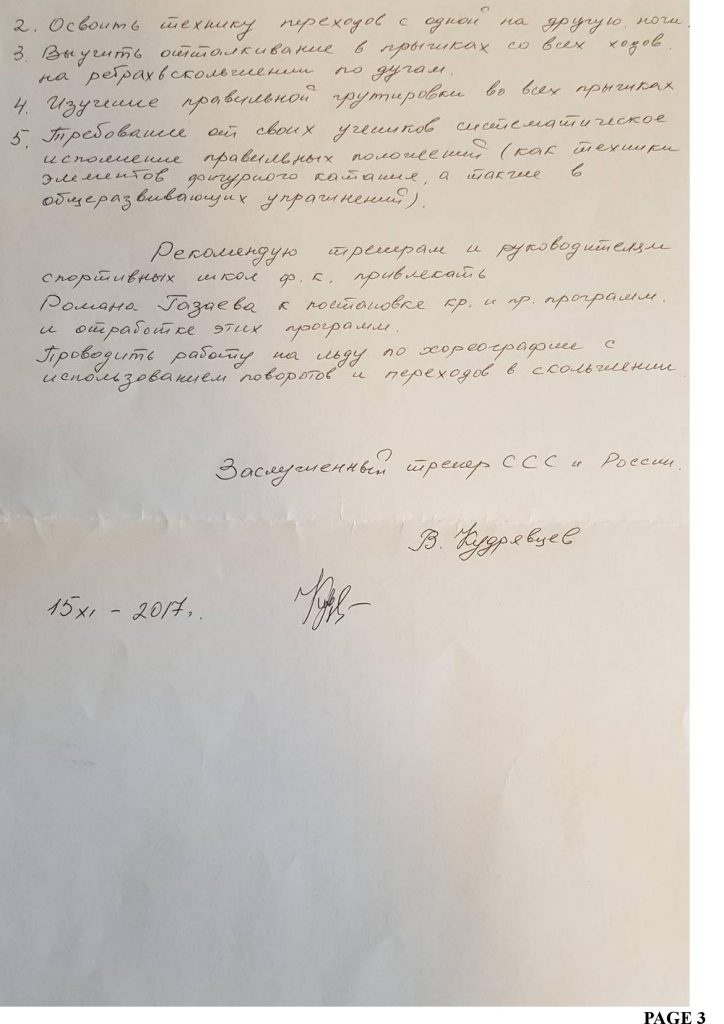 2. Освоить технику переходов с одной на другую ноги.
3. Выучить отталкивание в прыжках со всех ходов.
на ребрах в скольжении по дугам.
4. Изучение правильной групировки во всех прыжках
5. Требование от своих учеников систематическое
исполнение правильных положений (как техники
элементов фигурного катания, а также в
общеразвивающих упражнений).
Рекомендую тренерам и руководителям
спортивных школ ф.к. привлекать
Романа Газаева к постановке кр. и пр. программ.
и отработке этих программ.
Проводить работу на льду по хореографие с
использованием поворотов и переходов в скольжении.
Заслуженный тренер ССС и России.
В. Кудрявцев
15 XI - 2017г.
PAGE 3